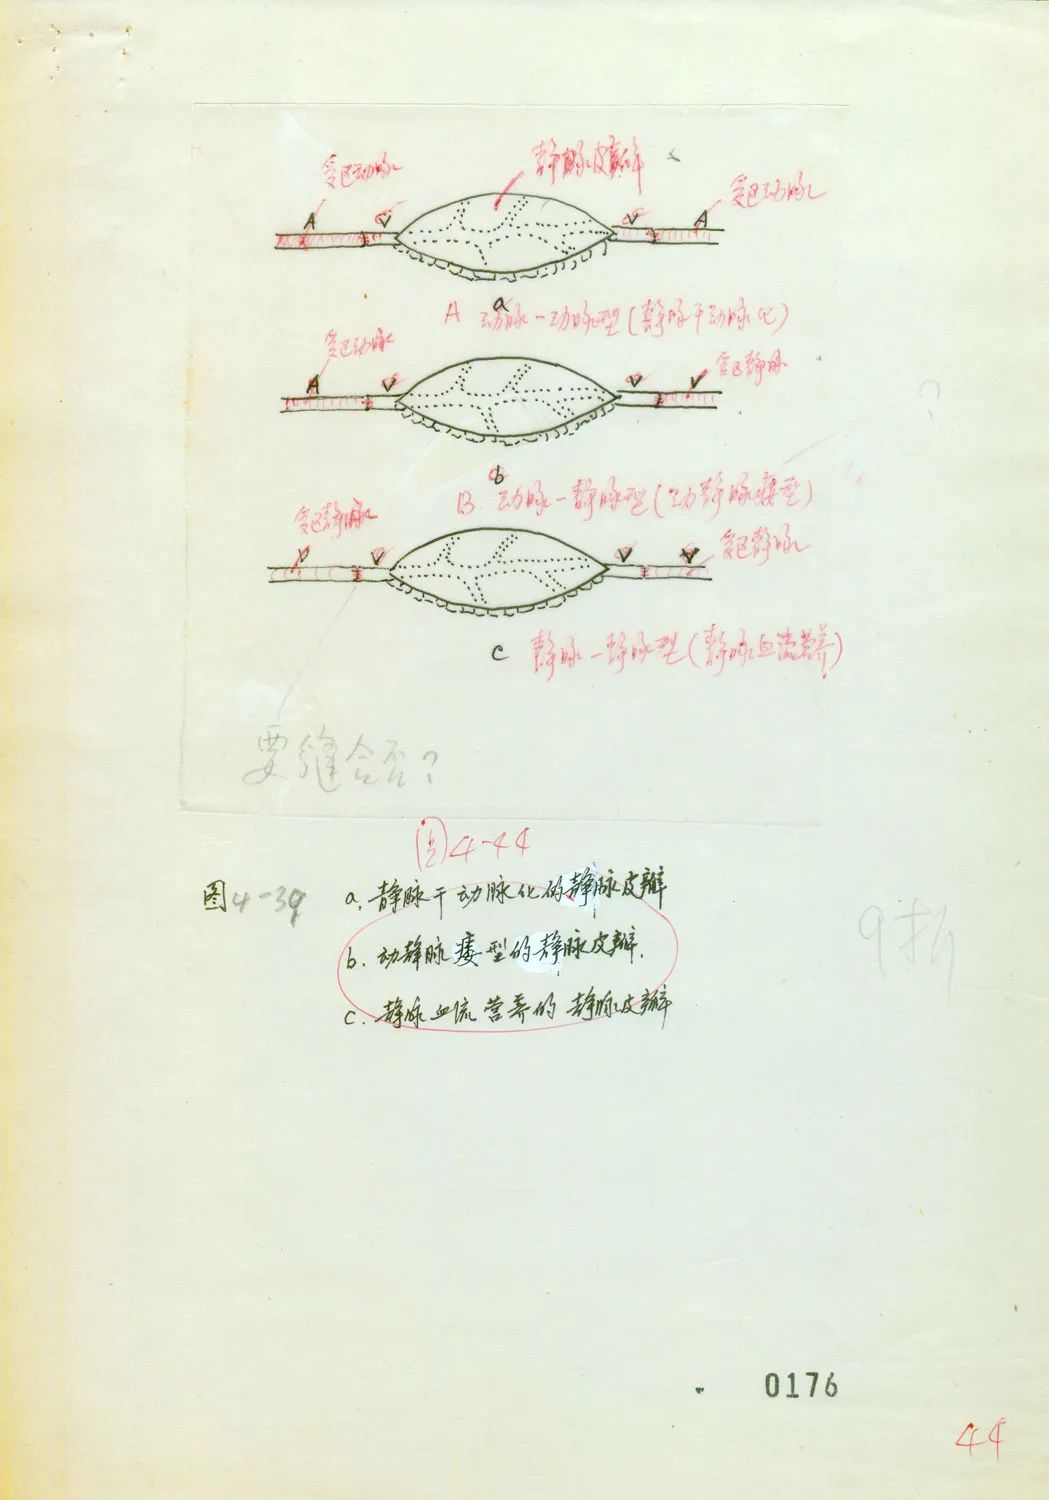 静脉皮瓣
受区动脉
受区动脉
A V V A
a
A 动脉-动脉型(静脉干动脉化)
受区动脉
受区静脉
A V V V
b
B. 动脉-静脉型(动静脉瘘型)
受区静脉
受区静脉
V V V V
c 静脉-静脉型(静脉血流营养)
要缝合否?
图4-44
图4-39 a. 静脉干动脉化的静脉皮瓣
b. 动静脉瘘型的静脉皮瓣.
c. 静脉血流营养的静脉皮瓣
9折
0176
44